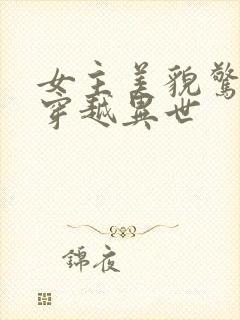 女主美貌驚
穿越異世
錦夜